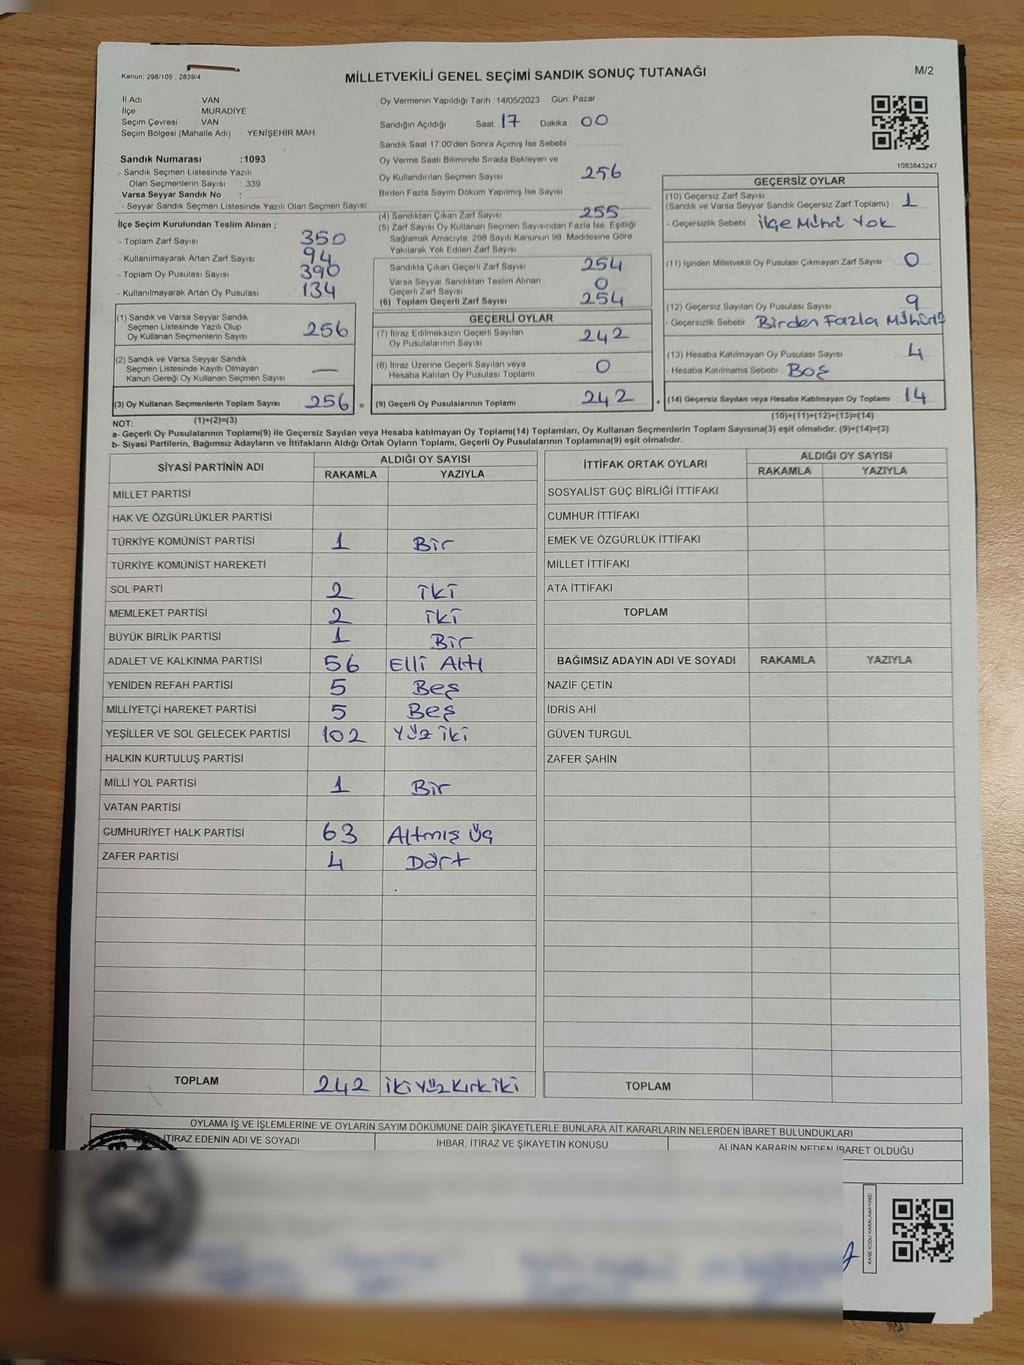 Kanun; 298/105 . 2839/4
MİLLETVEKİLİ GENEL SEÇİMİ SANDIK SONUÇ TUTANAĞI
M/2
İl Adı : VAN
İlçe MURADİYE
Seçim Çevresi : VAN
Seçim Bölgesi (Mahalle Adı) : YENİŞEHİR MAH.
Sandık Numarası :1093
- Sandık Seçmen Listesinde Yazılı
Olan Seçmenlerin Sayısı : 339
Varsa Seyyar Sandık No :
- Seyyar Sandık Seçmen Listesinde Yazılı Olan Seçmen Sayısı
İlçe Seçim Kurulundan Teslim Alınan ;
- Toplam Zarf Sayısı 350
- Kullanılmayarak Artan Zarf Sayısı 94
- Toplam Oy Pusulası Sayısı 390
- Kullanılmayarak Artan Oy Pusulası 134
(1) Sandık ve Varsa Seyyar Sandık
Seçmen Listesinde Yazılı Olup
Oy Kullanan Seçmenlerin Sayısı 256
(2) Sandık ve Varsa Seyyar Sandık
Seçmen Listesinde Kayıtlı Olmayan
Kanun Gereği Oy Kullanan Seçmen Sayısı —
(3) Oy Kullanan Seçmenlerin Toplam Sayısı 256 =
(1)+(2)=(3)
Oy Vermenin Yapıldığı Tarih :14/05/2023 Gün: Pazar
Sandığın Açıldığı Saat 17 Dakika 00
Sandık Saat 17.00'den Sonra Açımış İse Sebebi
Oy Verme Saati Bitiminde Sırada Bekleyen ve
Oy Kullandırılan Seçmen Sayısı 256
Birden Fazla Sayım Döküm Yapılmış İse Sayısı
(4) Sandıktan Çıkan Zarf Sayısı 255
(5) Zarf Sayısı Oy Kullanan Seçmen Sayısından Fazla İse, Eşitliği
Sağlamak Amacıyla, 298 Sayılı Kanunun 98. Maddesine Göre
Yakılarak Yok Edilen Zarf Sayısı
Sandıkta Çıkan Geçerli Zarf Sayısı 254
Varsa Seyyar Sandıktan Teslim Alınan
Geçerli Zarf Sayısı 0
(6) Toplam Geçerli Zarf Sayısı 254
GEÇERLİ OYLAR
(7) İtiraz Edilmeksizin Geçerli Sayılan
Oy Pusulalarının Sayısı 242
(8) İtiraz Üzerine Geçerli Sayılan veya
Hesaba Katılan Oy Pusulası Toplamı 0
(9) Geçerli Oy Pusulalarının Toplamı 242 +
1083643247
GEÇERSİZ OYLAR
(10) Geçersiz Zarf Sayısı
(Sandık ve Varsa Seyyar Sandık Geçersiz Zarf Toplamı) 1
- Geçersizlik Sebebi ilçe Mührü Yok
(11) İçinden Milletvekili Oy Pusulası Çıkmayan Zarf Sayısı 0
(12) Geçersiz Sayılan Oy Pusulası Sayısı 9
- Geçersizlik Sebebi Birden Fazla Mühürlü
(13) Hesaba Katılmayan Oy Pusulası Sayısı 4
- Hesaba Katılmama Sebebi Boş
(14) Geçersiz Sayılan veya Hesaba Katılmayan Oy Toplamı 14
(10)+(11)+(12)+(13)=(14)
NOT:
a- Geçerli Oy Pusulalarının Toplamı(9) ile Geçersiz Sayılan veya Hesaba katılmayan Oy Toplamı(14) Toplamları, Oy Kullanan Seçmenlerin Toplam Sayısına(3) eşit olmalıdır. (9)+(14)=(3)
b- Siyasi Partilerin, Bağımsız Adayların ve İttifakların Aldığı Ortak Oyların Toplamı, Geçerli Oy Pusulalarının Toplamına(9) eşit olmalıdır.
SİYASİ PARTİNİN ADI ALDIĞI OY SAYISI
RAKAMLA YAZIYLA
MİLLET PARTİSİ
HAK VE ÖZGÜRLÜKLER PARTİSİ
TÜRKİYE KOMÜNİST PARTİSİ 1 Bir
TÜRKİYE KOMÜNİST HAREKETİ
SOL PARTİ 2 iki
MEMLEKET PARTİSİ 2 iki
BÜYÜK BİRLİK PARTİSİ 1 Bir
ADALET VE KALKINMA PARTİSİ 56 Elli Altı
YENİDEN REFAH PARTİSİ 5 Beş
MİLLİYETÇİ HAREKET PARTİSİ 5 Beş
YEŞİLLER VE SOL GELECEK PARTİSİ 102 Yüz iki
HALKIN KURTULUŞ PARTİSİ
MİLLİ YOL PARTİSİ 1 Bir
VATAN PARTİSİ
CUMHURİYET HALK PARTİSİ 63 Altmış Üç
ZAFER PARTİSİ 4 Dört
TOPLAM 242 iki Yüz Kırk iki
İTTİFAK ORTAK OYLARI ALDIĞI OY SAYISI
RAKAMLA YAZIYLA
SOSYALİST GÜÇ BİRLİĞİ İTTİFAKI
CUMHUR İTTİFAKI
EMEK VE ÖZGÜRLÜK İTTİFAKI
MİLLET İTTİFAKI
ATA İTTİFAKI
TOPLAM
BAĞIMSIZ ADAYIN ADI VE SOYADI RAKAMLA YAZIYLA
NAZİF ÇETİN
İDRİS AHİ
GÜVEN TURGUL
ZAFER ŞAHİN
TOPLAM
OYLAMA İŞ VE İŞLEMLERINE VE OYLARIN SAYIM DÖKÜMÜNE DAİR ŞİKAYETLERLE BUNLARA AİT KARARLARIN NELERDEN İBARET BULUNDUKLARI
İTİRAZ EDENİN ADI VE SOYADI İHBAR, İTİRAZ VE ŞİKAYETİN KONUSU ALINAN KARARIN NEDEN İBARET OLDUĞU